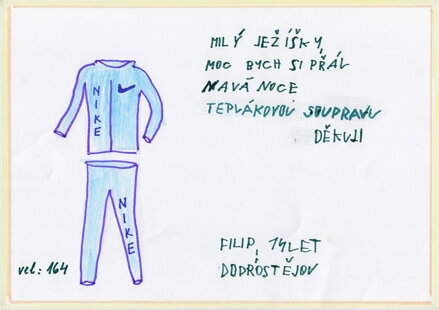 MILÝ JEŽÍŠKY,
MOC BYCH SI PŘÁL
NAVÁNOCE
TEPLÁKOVOU SOUPRAVU
DĚKUJI
NIKE
NIKE
vel.: 164
FILIP, 14LET
DOPRÓSTĚJOV